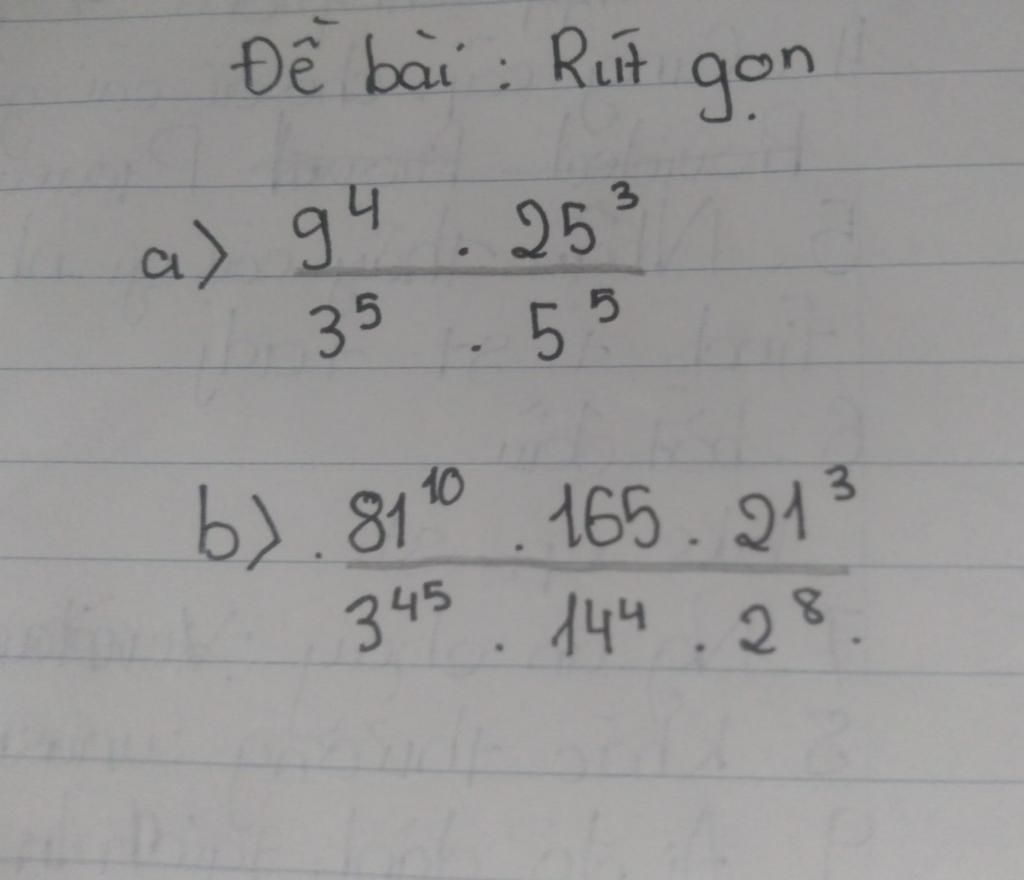 Đề bài : Rút gọn
a) 9⁴ . 25³
3⁵ . 5⁵
b) . 81¹⁰ . 165 . 21³
3⁴⁵ . 14⁴ . 2⁸ .